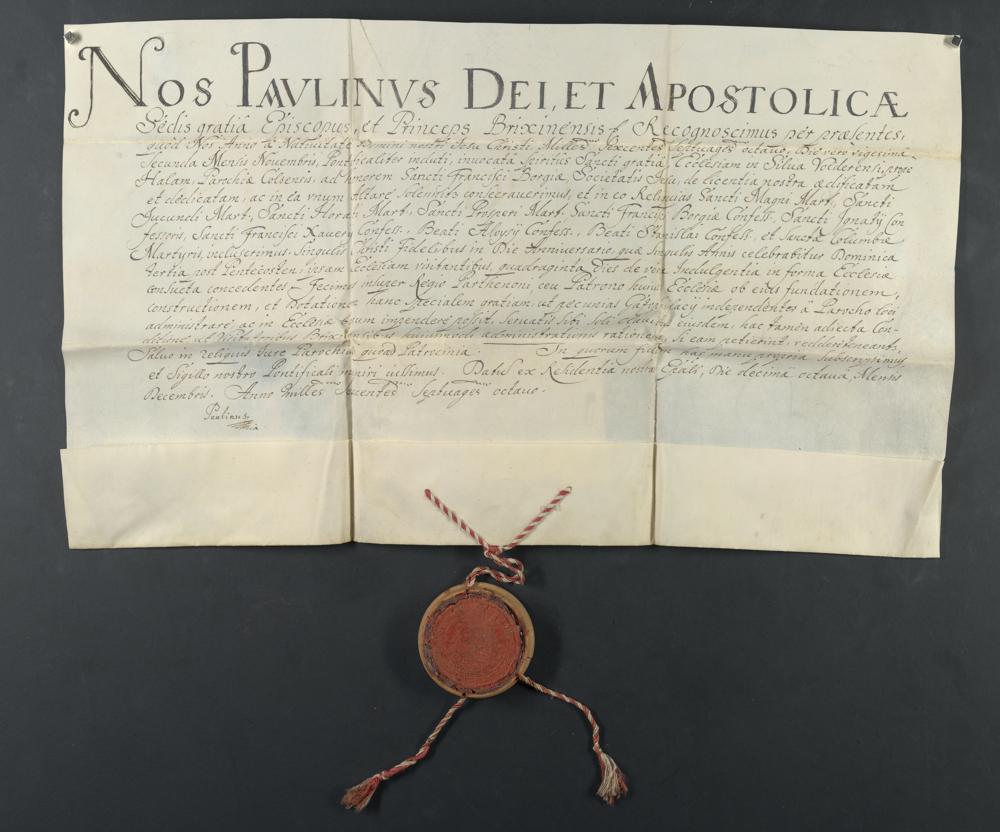 NOS PAVLINVS DEI, ET APOSTOLICÆ
Sedis gratiâ Episcopus, et Princeps Brixinensis Recognoscimus per præsentes,
quod Nos Anno à Nativitate Domini nostri Jesu Christi, Milles. Sexcentes. Septuages. octavo, Die vero vigesima
secunda Mensis Novembris, Pontificaliter induti, invocatâ Spiritus Sancti gratiâ, Ecclesiam in Silva Volderensi, prope
Halam, Parochiæ Colsensis, ad honorem Sancti Francisci Borgiæ Societatis Jesu, de licentia nostra ædificatam
et dedicatam, ac in ea vnum Altare solenniter consecraverimus, et in eo Reliquias Sancti Magni Mart., Sancti
Jucundi Mart., Sancti Florati Mart., Sancti Prosperi Mart., Sancti Francisci Borgiæ Confess., Sancti Ignatij Con
fessoris, Sancti Francisci Xaverij Confess., Beati Aloysij Confess., Beati Stanislai Confess., et Sanctæ Columbæ
Martyris, incluserimus. Singulis Christi Fidelibus in Die Anniversario, quæ singulis Annis celebrabitur Dominica
tertia post Pentecosten, ipsam Ecclesiam visitantibus, quadraginta Dies de vera Indulgentia in forma Ecclesiæ
consueta concedentes. Fecimus insuper Regio Parthenoni, ceu Patrono huius Ecclesiæ ob eius fundationem,
constructionem, et Dotationem hanc specialem gratiam, ut pecunias independenter à Parocho loci
administrare, ac in Ecclesiæ usum impendere possit, servatis sibi soli clavibus eiusdem, hac tamen adiecta Con-
ditione, ut Visitatoribus Brixinensibus huiusmodi administrationis rationem, si eam petierint, reddere teneantur,
Salvo in reliquis Iure Parochiæ quoad Patrocinia. In quorum fidem has manu propria subscripsimus,
et Sigillo nostro Pontificali muniri iussimus. Datum ex Residentia nostra Die decima octava, Mensis
Decembris. Anno Milles.mo Sexcentes.mo Septuages.mo octavo.
Paulinus